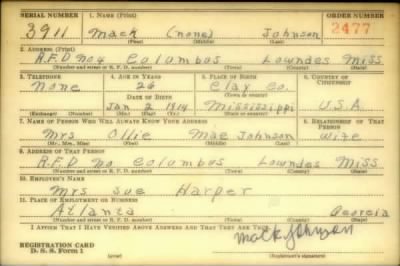 SERIAL NUMBER 1. NAME (Print) ORDER NUMBER
3911 Mack (none) Johnson 2477
(First) (Middle) (Last)
2. ADDRESS (Print)
R.F.D no4 Columbus Lowndes Miss.
(Number and street or R. F. D. number) (Town) (County) (State)
3. TELEPHONE 4. AGE IN YEARS 5. PLACE OF BIRTH 6. COUNTRY OF CITIZENSHIP
None 26 Clay Co.
DATE OF BIRTH (Town or county)
Jan 2 1914 Mississippi U.S.A.
(Exchange) (Number) (Mo.) (Day) (Yr.) (State or country)
7. NAME OF PERSON WHO WILL ALWAYS KNOW YOUR ADDRESS 8. RELATIONSHIP OF THAT PERSON
Mrs Ollie Mae Johnson Wife
(Mr., Mrs., Miss) (First) (Middle) (Last)
9. ADDRESS OF THAT PERSON
R.F.D no Columbus Lowndes Miss.
(Number and street or R. F. D. number) (Town) (County) (State)
10. EMPLOYER'S NAME
Mrs Sue Harper
11. PLACE OF EMPLOYMENT OR BUSINESS
Atlanta Georgia
(Number and street or R. F. D. number) (Town) (County) (State)
I AFFIRM THAT I HAVE VERIFIED ABOVE ANSWERS AND THAT THEY ARE TRUE.
REGISTRATION CARD
D. S. S. Form 1
Mack Johnson